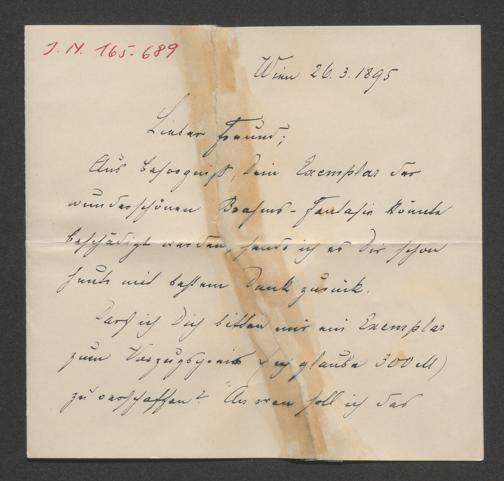 J. N. 165.689
Wien 26.3.1895
Lieber Freund;
Aus Besorgniß, Dein Exemplar der
wunderschönen Brahms-Fantasie könnte
beschädigt werden, sende ich es Dir schon
heute mit bestem Dank zurück.
Darf ich Dich bitten mir ein Exemplar
zum Vorzugspreis (ich glaube 300 M)
zu verschaffen? An wen soll ich das